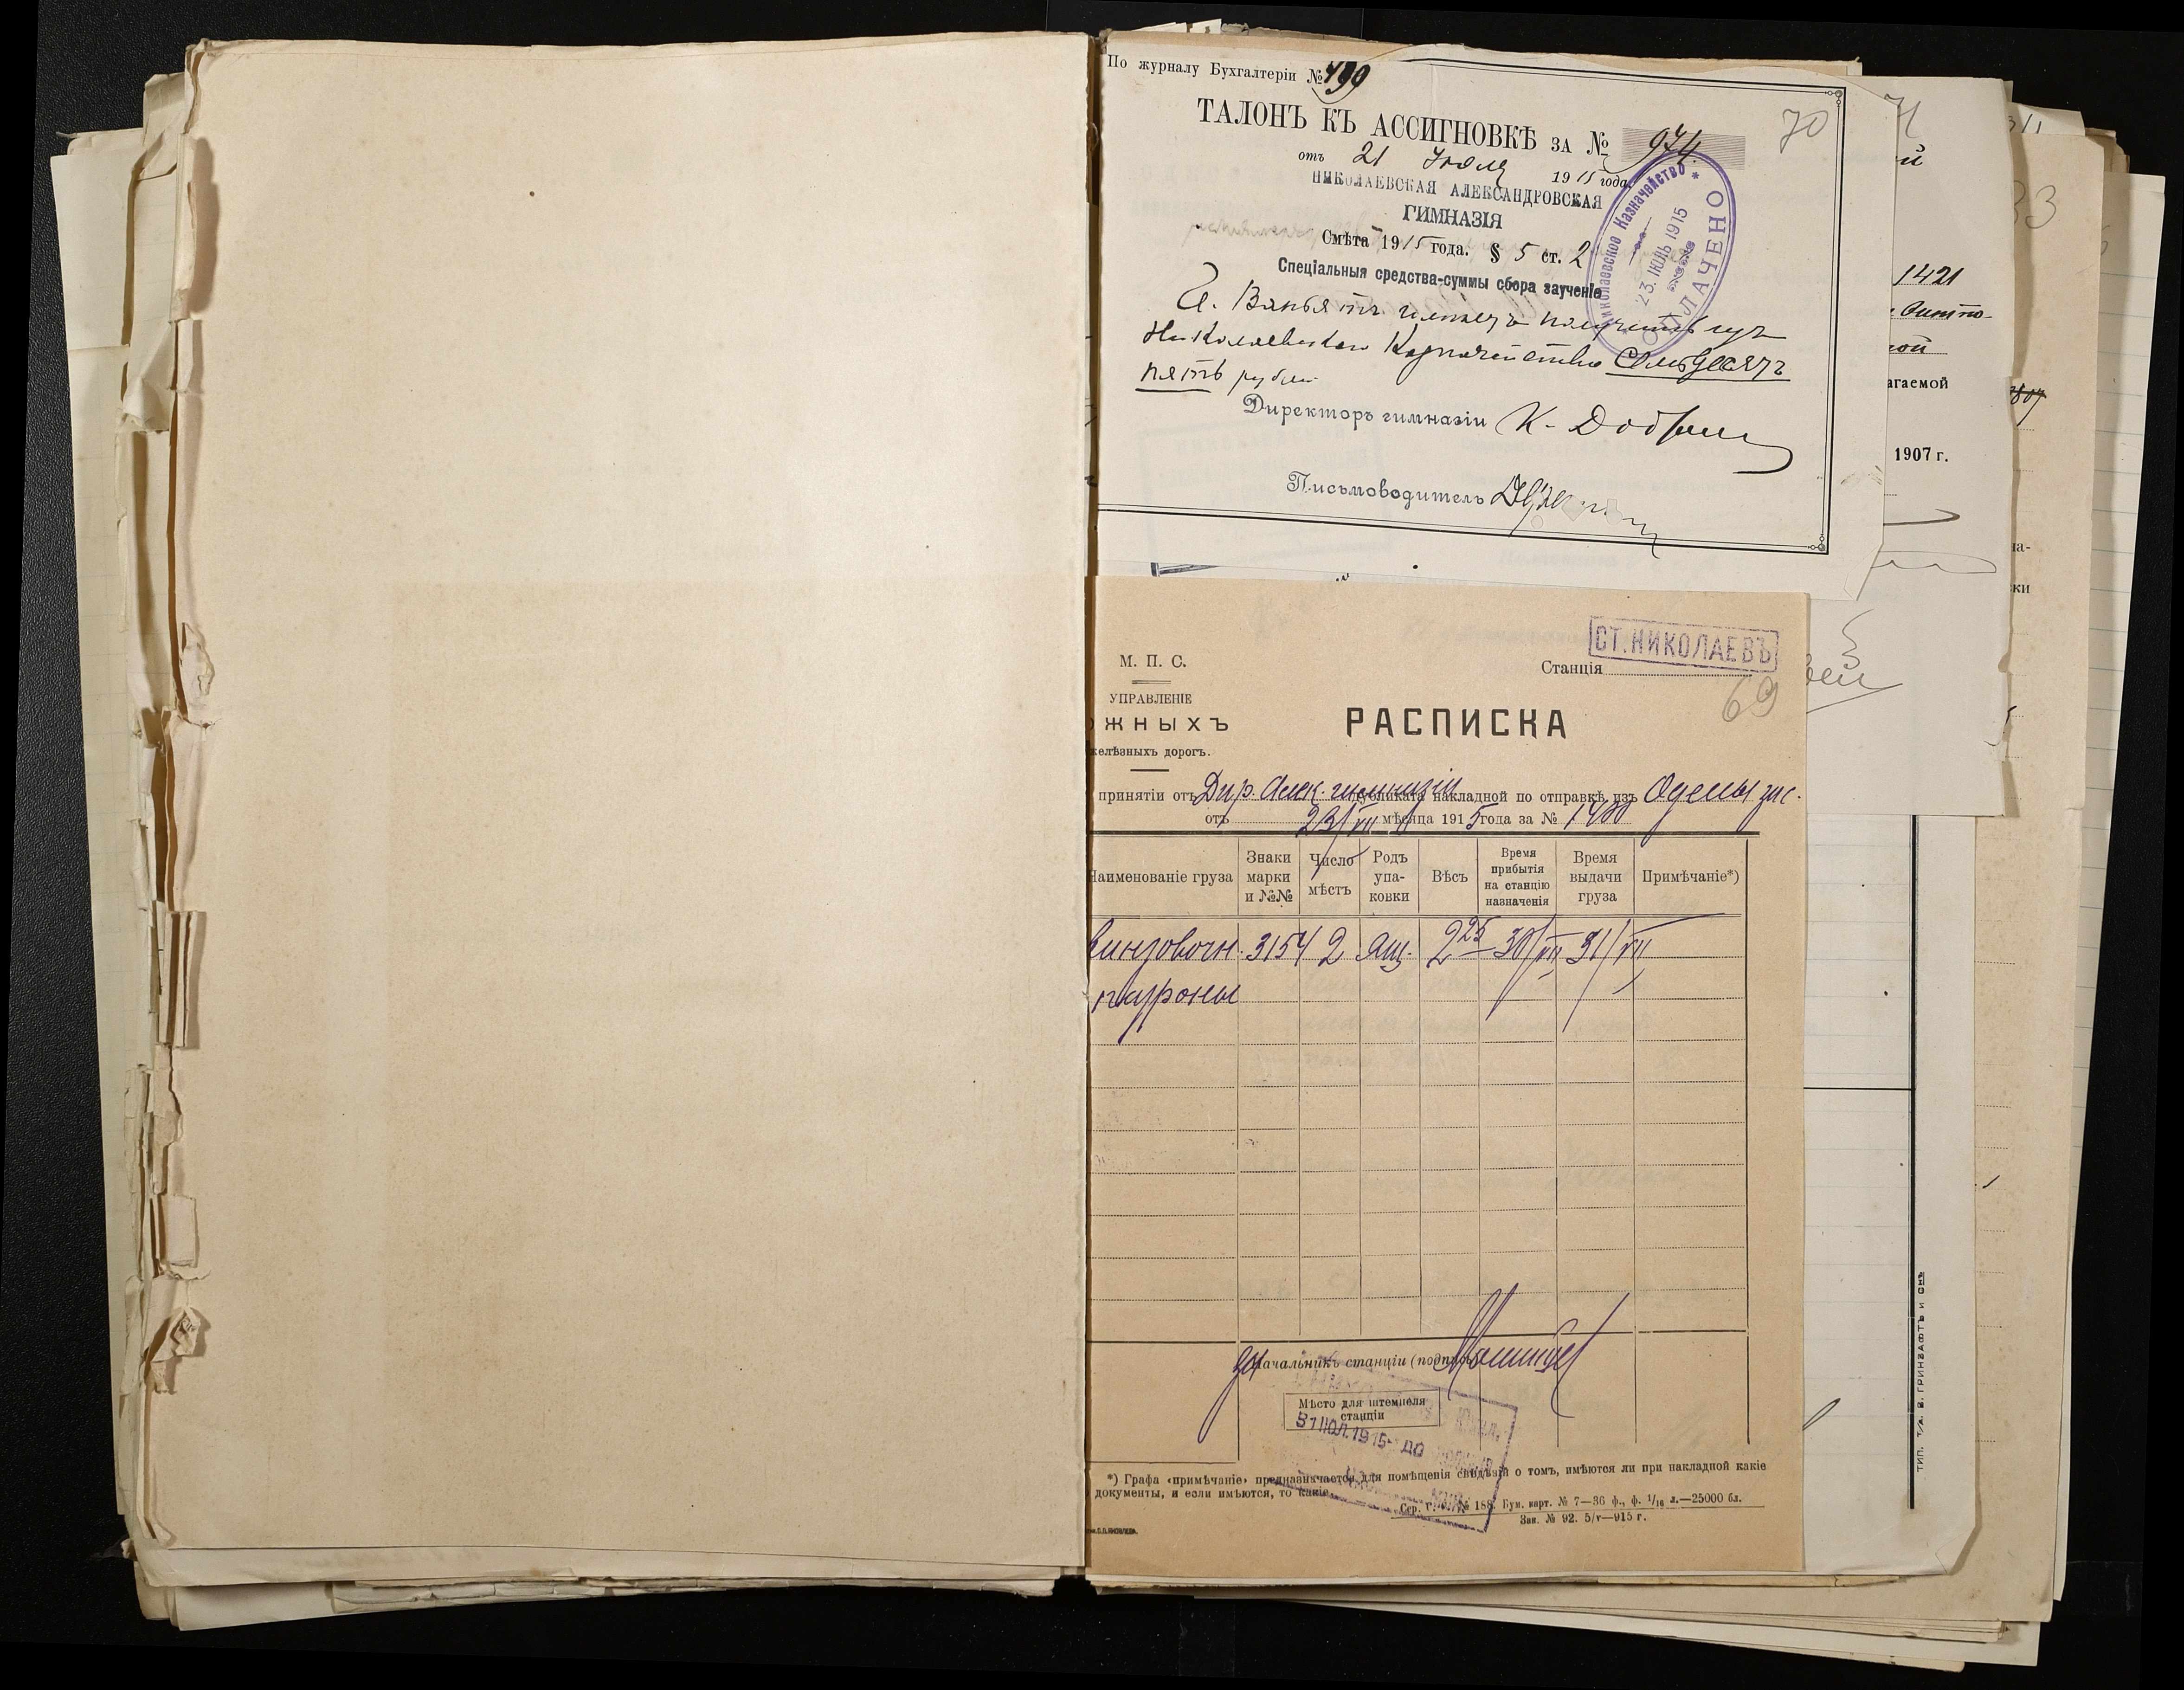 По журналу Бухгалтеріи № 499
70
ТАЛОНЪ КЪ АССИГНОВКѢ ЗА № 974.
отъ 21 Іюля 1915 года.
НИКОЛАЕВСКАЯ АЛЕКСАНДРОВСКАЯ
ГИМНАЗІЯ
Смѣта 1915 года. § 5 ст. 2
Спеціальныя средства-суммы сбора за ученіе
Николаевское Казначейство
23. ІЮЛЬ 1915
ОПЛАЧЕНО
имѣетъ получить изъ
Николаевскаго Казначейства Семьдесятъ
пять рублей
Директоръ гимназіи К. Добр
Письмоводитель
71
1421
1907 г.
агаемой
СТ. НИКОЛАЕВЪ
Станція
69
М. П. С.
УПРАВЛЕНІЕ
ЖНЫХЪ
желѣзныхъ дорогъ.
РАСПИСКА
принятіи отъ Дир. Алек. гимназіи дубликата накладной по отправкѣ изъ Одессы
отъ 23/VII мѣсяца 1915 года за № 1480
Наименованіе груза
Знаки марки и №№
Число мѣстъ
Родъ упаковки
Вѣсъ
Время прибытія на станцію назначенія
Время выдачи груза
Примѣчаніе*)
винтовочн. 3154 2 ящ. 2 25 30/VII 31/VII
патроны
Начальникъ станціи (подпись)
Мѣсто для штемпеля
станціи
31 ІЮЛ. 1915
*) Графа «примѣчаніе» предназначается для помѣщенія свѣдѣній о томъ, имѣются ли при накладной какіе
документы, и если имѣются, то какіе.
Сер. г. № 188. Бум. карт. № 7—36 ф., ф. 1/16 л.—25000 бл.
Зак. № 92. 5/V—915 г.
ТИП. Т/Д. В. ГРИНЗАФТЪ И СНЪ